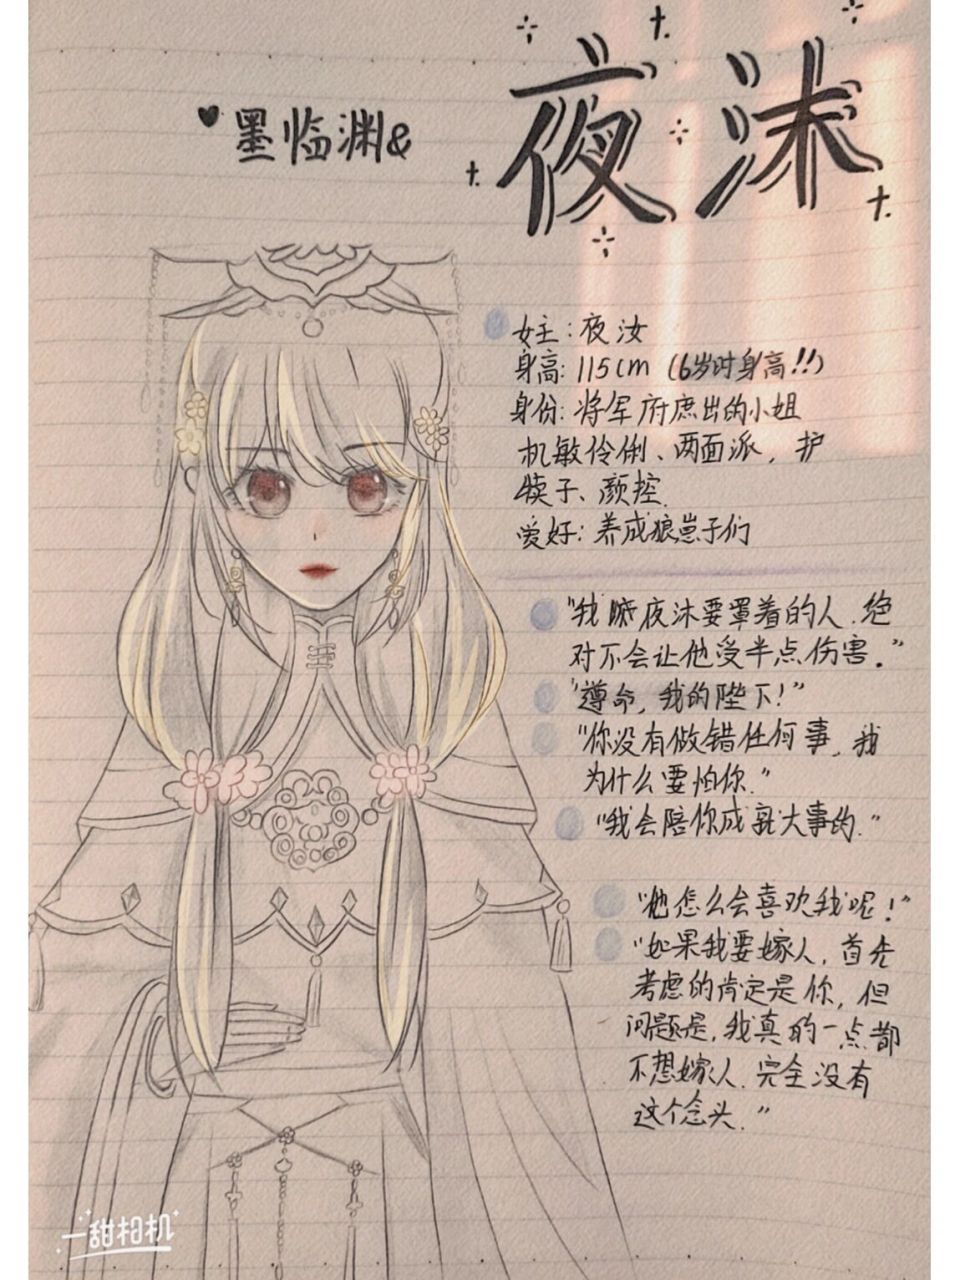 ♥墨临渊&
夜沫
女主:夜汝
身高:115cm (6岁时身高!!)
身份:将军府庶出的小姐
机敏伶俐、两面派,护
犊子、颜控.
爱好:养成狼崽子们
"我嫡夜沫要罩着的人.绝
对不会让他受半点伤害."
"遵命,我的陛下!"
"你没有做错任何事,我
为什么要怕你."
"我会陪你成就大事的."
"他怎么会喜欢我呢!"
"如果我要嫁人,首先
考虑的肯定是你,但
问题是,我真的一点都
不想嫁人.完全没有
这个念头."
一甜相机